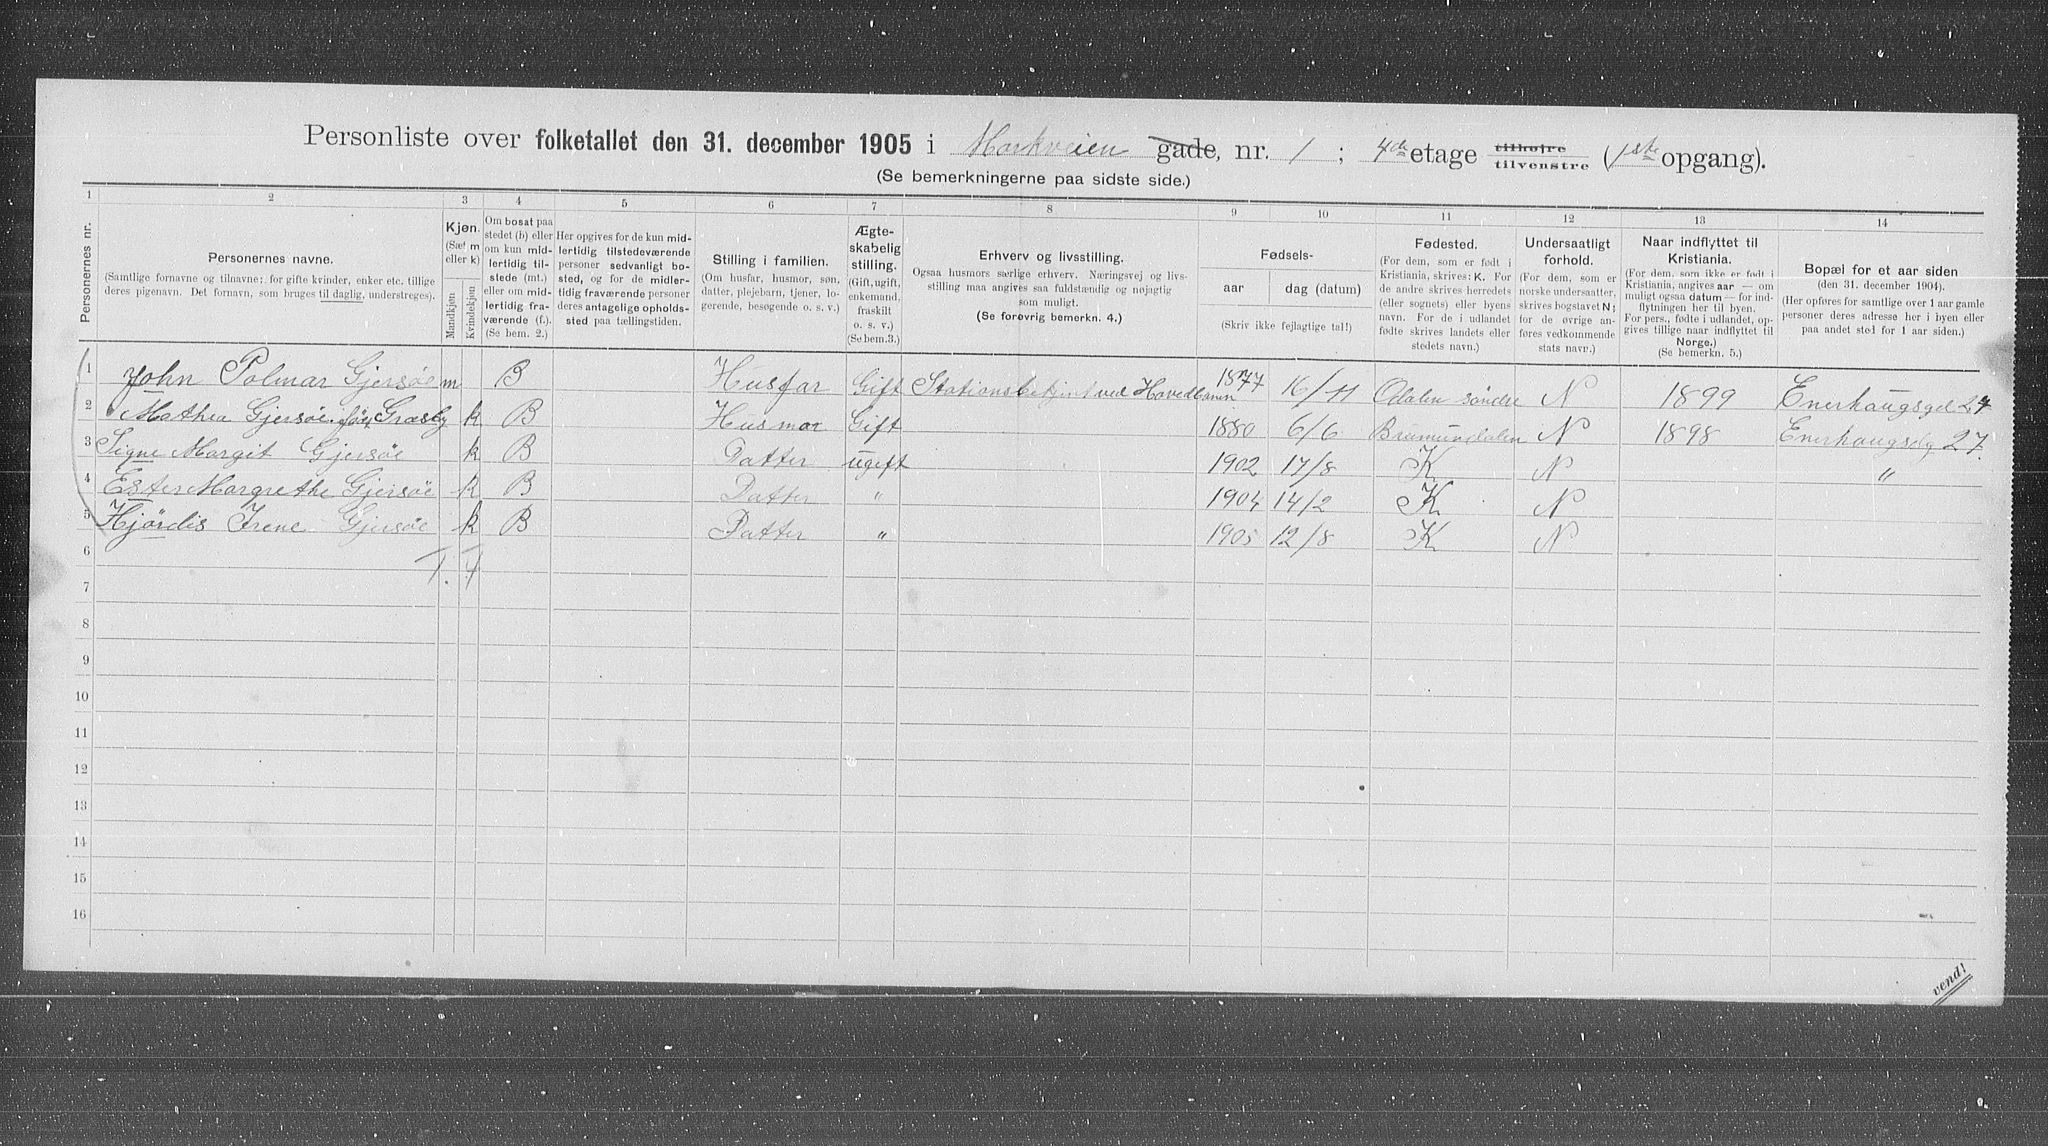 Personliste over folketallet den 31. december 1905 i Markveien gade, nr. 1 ; 4de etage tilhøjre tilvenstre (1ste opgang).
(Se bemerkningerne paa sidste side.)
1 2 3 4 5 6 7 8 9 10 11 12 13 14
Personernes nr.
Personernes navne.
(Samtlige fornavne og tilnavne; for gifte kvinder, enker etc. tillige
deres pigenavn. Det fornavn, som bruges til daglig, understreges).
Kjøn.
(Sæt m
eller k)
Mandkjøn
Kvindekjøn
Om bosat paa
stedet (b) eller
om kun mid-
lertidig til-
stede (mt.)
eller om mid-
lertidig fra-
værende (f.).
(Se bem. 2.)
Her opgives for de kun mid-
lertidig tilstedeværende
personer sedvanligt bo-
sted, og for de midler-
tidig fraværende personer
deres antagelige opholds-
sted paa tællingstiden.
Stilling i familien.
(Om husfar, husmor, søn,
datter, plejebarn, tjener, lo-
gerende, besøgende o. s. v.)
Ægte-
skabelig
stilling.
(Gift, ugift,
enkemand,
fraskilt
o. s. v.)
(Se bem.3.)
Erhverv og livsstilling.
Ogsaa husmors særlige erhverv. Næringsvej og livs-
stilling maa angives saa fuldstændig og nøjagtig
som muligt.
(Se forøvrig bemerkn. 4.)
Fødsels-
aar
dag (datum)
(Skriv ikke fejlagtige tal!)
Fødested.
(For dem, som er født i
Kristiania, skrives: K. For
de andre skrives herredets
(eller sognets) eller byens
navn. For de i udlandet
fødte skrives landets eller
stedets navn.)
Undersaatligt
forhold.
(For dem, som er
norske undersaatter,
skrives bogstavet N;
for de øvrige an-
føres vedkommende
stats navn.)
Naar indflyttet til
Kristiania.
(For dem, som ikke er født i
Kristiania, angives aar — om
muligt ogsaa datum — for ind-
flytningen her til byen.
For pers., fødte i udlandet, op-
gives tillige naar indflyttet til
Norge.)
(Se bemerkn. 5.)
Bopæl for et aar siden
(den 31. december 1904).
(Her opføres for samtlige over 1 aar gamle
personer deres adresse her i byen eller
paa andet sted for 1 aar siden.)
1 John Polmar Gjersøe m B Husfar Gift Stationsbetjent ved Hovedbanen 1877 16/11 Odalen søndre N 1899 Enerhaugsgd 27
2 Mathea Gjersøe født Grasby k B Husmor Gift 1880 6/6 Brumundalen N 1898 Enerhaugsdg 27.
3 Signe Margit Gjersøe k B Datter ugift 1902 17/8 K N "
4 Ester Margrethe Gjersøe k B Datter " 1904 14/2 K N
5 Hjørdis Irene Gjersøe k B Datter " 1905 12/8 K N
6 T. F
7
8
9
10
11
12
13
14
15
16
vend!